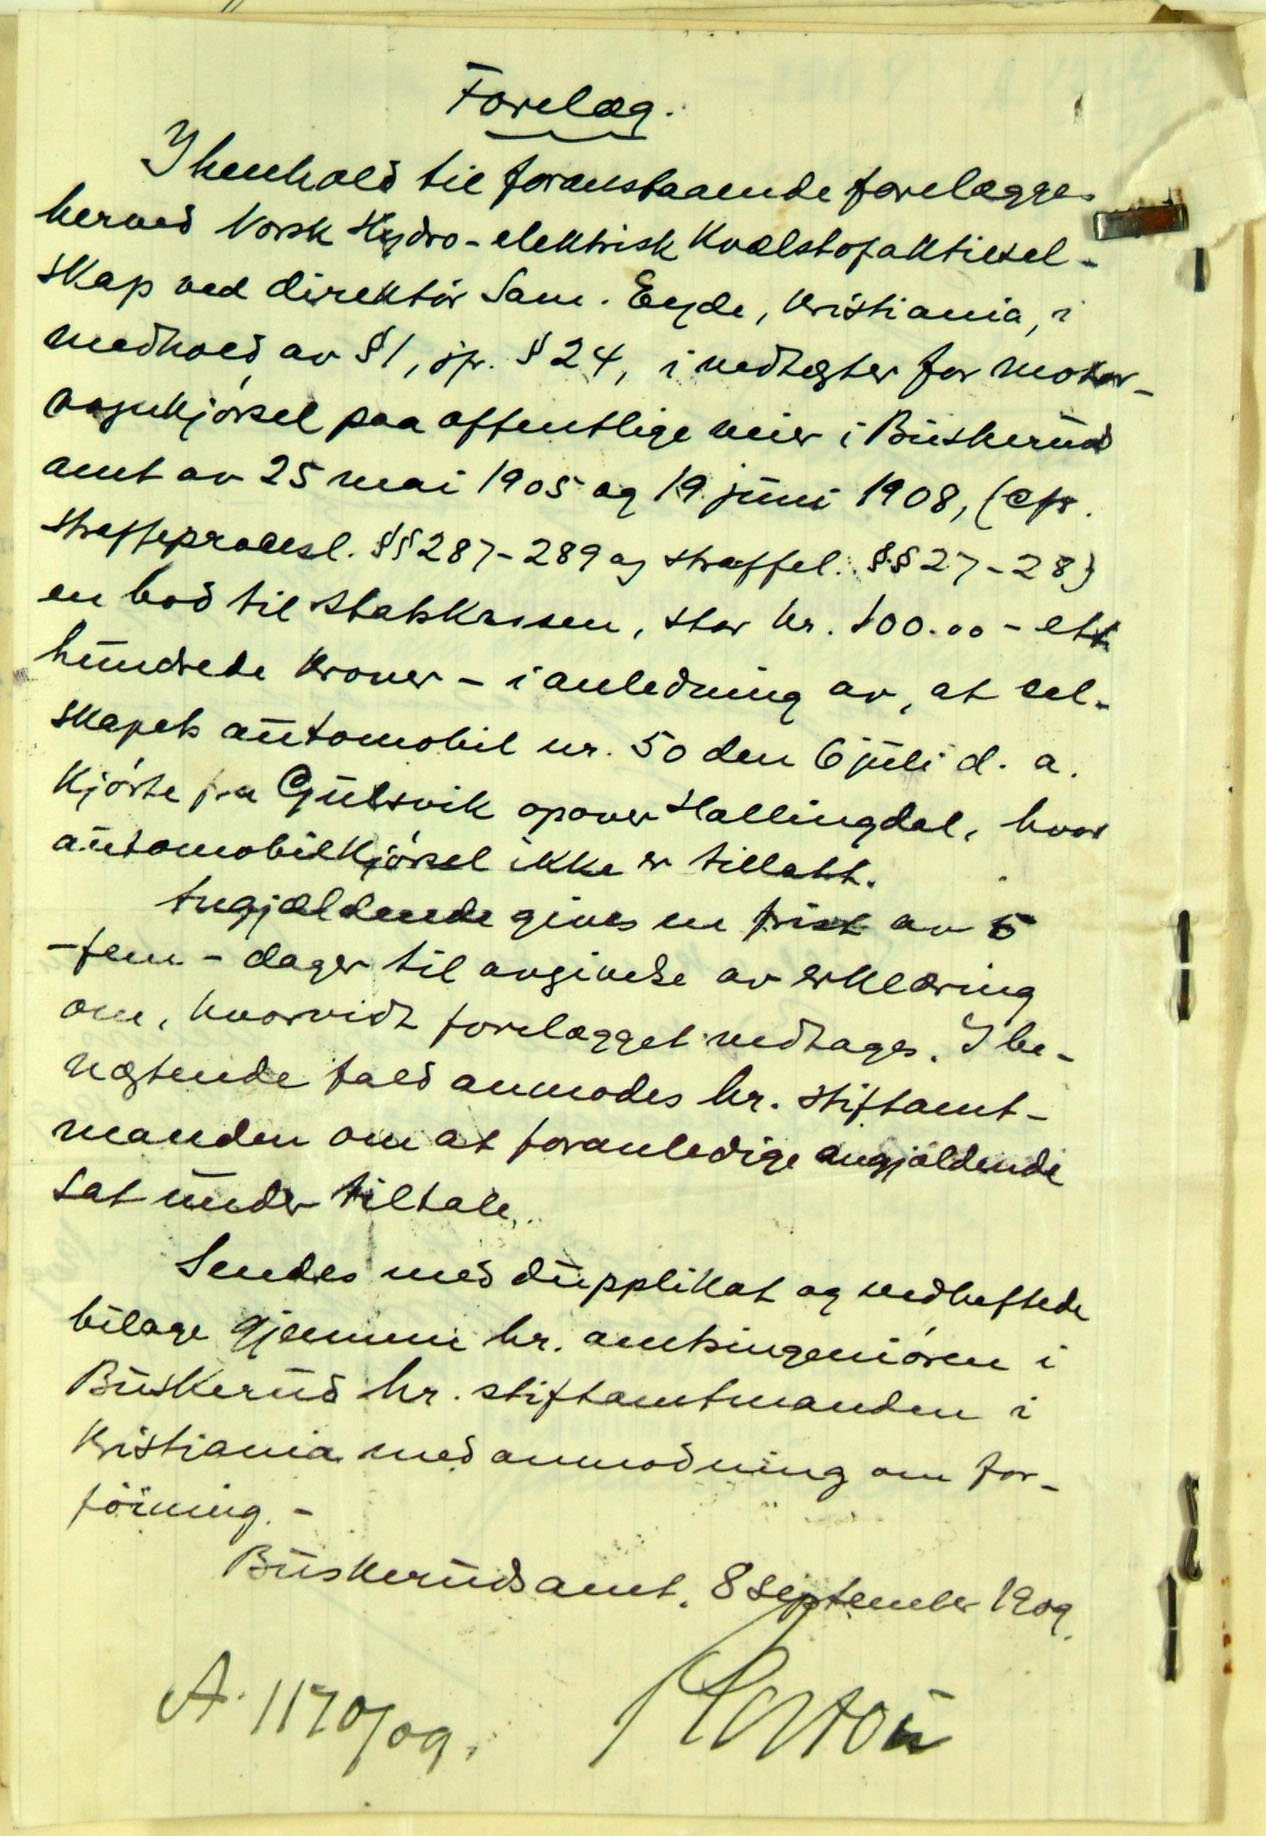 Forelæg.
I henhold til foranstaaende forelægges
herved Norsk Hydro-elektrisk Kvælstofaktiesel-
skap ved direktör Sam. Eyde, Kristiania, i
medhold av § 1, jfr. § 24, i vedtægter for motor-
vognkjörsel paa offentlige veier i Buskerud
amt av 25 mai 1905 og 19 juni 1908, (cfr.
straffeprocesl. §§ 287-289 og straffel. §§ 27-28)
en bod til statskassen, stor kr. 100.00 - ett
hundrede kroner - i anledning av, at sel-
skapets automobil nr. 50 den 6 juli d. a.
kjörte fra Gulsvik opover Hallingdal, hvor
automobilkjörsel ikke er tillatt.
Angjældende gives en frist av 5
- fem - dager til avgivelse av erklæring
om, hvorvidt forelægget vedtages. I be-
nægtende fald anmodes hr. stiftamt-
manden om at foranledige angjældende
sat under tiltale.
Sendes med dupplikat og vedheftede
bilage gjennem hr. amtsingeniören i
Buskerud hr. stiftamtmanden i
Kristiania med anmodning om for-
föining. -
Buskeruds amt, 8 september 1909.
A. 1170/09.